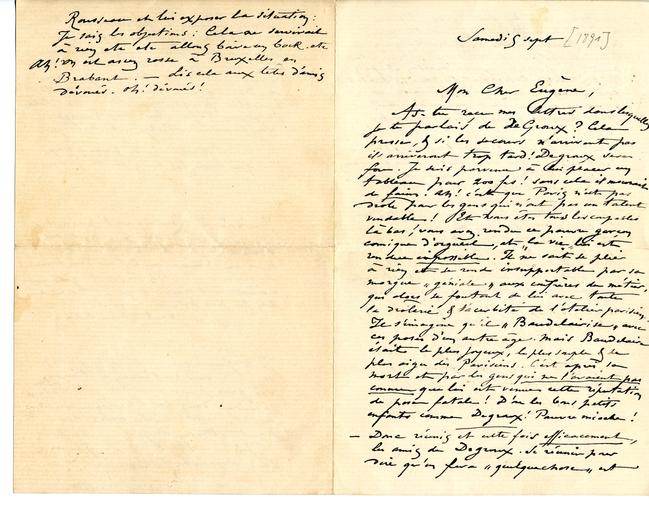 Samedi 5 sept [1891]
Mon Cher Eugène,
As-tu reçu mes lettres dans lesquelles
je te parlais de DeGroux? Cela
presse, & si les secours n'arrivent pas
ils arriveront trop tard! Degroux sera
fou. Je suis parvenu à lui placer un
tableau pour 200 frs! sans cela il mourait
de faim! Ah! c'est que Paris n'est pas
drôle pour les gens qui n'ont pas un talent
vendable! Et vous êtes tous les coupables
là bas! vous avez rendu ce pauvre garçon
comique d'orgueil, et "la vie" lui est
rendue impossible. Il ne sait se plier
à rien et se rend insupportable par sa
morgue "géniale" aux confrères du métier,
qui alors se foutent de lui avec toute
la drôlerie & l'acerbité de l'atelier parisien.
Il s'imagine qu'il "Baudelairise" avec
ces poses d'un autre âge. Mais Baudelaire
était le plus joyeux, le plus simple & le
plus aigu des Parisiens. C'est après sa
mort et par les gens qui ne l'avaient pas
connu que lui est venue cette réputation
de pose fatale! D'où les bons petits
enfants comme Degroux! Pauvre mioche!
— Donc réunis et cette fois efficacement,
les amis de Degroux. Se réunir pour
dire qu'on fera "quelque chose" est
Rousseau et lui exposer la situation:
Je sais les objections: Cela ne servirait
à rien etc etc allons boire un bock. etc
Ah! on est assez rosse à Bruxelles en
Brabant. — Dis cela aux tels d'amis
dévoués. Oh! dévoués!